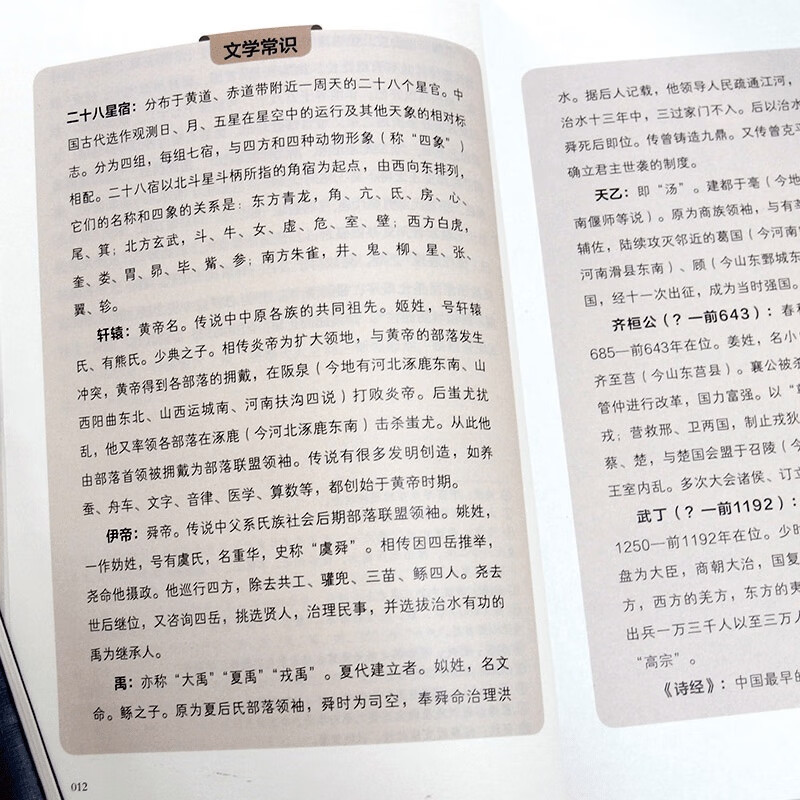 文学常识
二十八星宿：分布于黄道、赤道带附近一周天的二十八个星官。中
国古代选作观测日、月、五星在星空中的运行及其他天象的相对标
志。分为四组，每组七宿，与四方和四种动物形象（称“四象”）
相配。二十八宿以北斗星斗柄所指的角宿为起点，由西向东排列，
它们的名称和四象的关系是：东方青龙，角、亢、氐、房、心、
尾、箕；北方玄武，斗、牛、女、虚、危、室、壁；西方白虎，
奎、娄、胃、昴、毕、觜、参；南方朱雀，井、鬼、柳、星、张、
翼、轸。
轩辕：黄帝名。传说中中原各族的共同祖先。姬姓，号轩辕
氏、有熊氏。少典之子。相传炎帝为扩大领地，与黄帝的部落发生
冲突，黄帝得到各部落的拥戴，在阪泉（今地有河北涿鹿东南、山
西阳曲东北、山西运城南、河南扶沟四说）打败炎帝。后蚩尤扰
乱，他又率领各部落在涿鹿（今河北涿鹿东南）击杀蚩尤。从此他
由部落首领被拥戴为部落联盟领袖。传说有很多发明创造，如养
蚕、舟车、文字、音律、医学、算数等，都创始于黄帝时期。
伊帝：舜帝。传说中父系氏族社会后期部落联盟领袖。姚姓，
一作妫姓，号有虞氏，名重华，史称“虞舜”。相传因四岳推举，
尧命他摄政。他巡行四方，除去共工、驩兜、三苗、鲧四人。尧去
世后继位，又咨询四岳，挑选贤人，治理民事，并选拔治水有功的
禹为继承人。
禹：亦称“大禹”“夏禹”“戎禹”。夏代建立者。姒姓，名文
命。鲧之子。原为夏后氏部落领袖，舜时为司空，奉舜命治理洪
012
水。据后人记载，他领导人民疏通江河，
治水十三年中，三过家门不入。后以治水
舜死后即位。传曾铸造九鼎。又传曾克平
确立君主世袭的制度。
天乙：即“汤”。建都于亳（今地
南偃师等说）。原为商族领袖，与有
辅佐，陆续攻灭邻近的葛国（今河南
河南滑县东南）、顾（今山东鄄城东
国，经十一次出征，成为当时强国。
齐桓公（？—前643）：春
685—前643年在位。姜姓，名小
齐至莒（今山东莒县）。襄公被杀
管仲进行改革，国力富强。以“
戎；营救邢、卫两国，制止戎狄
蔡、楚，与楚国会盟于召陵（今
王室内乱。多次大会诸侯、订立
武丁（？—前1192）：
1250—前1192年在位。少时
盘为大臣，商朝大治，国复
方，西方的羌方，东方的夷
出兵一万三千人以至三万人
“高宗”。
《诗经》：中国最早的